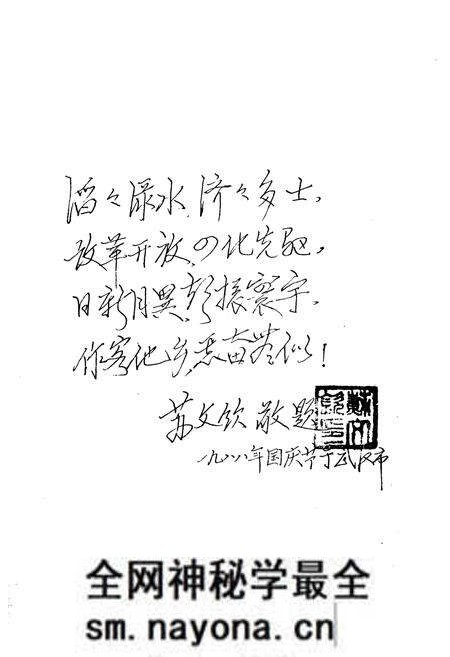 滔々渌水,济々多士,
改革开放,四化先驱,
日新月異,振寰宇,
作客他乡,奋!
苏文钦敬题
一九八八年国庆节于武汉市
全网神秘学最全
sm.nayona.cn